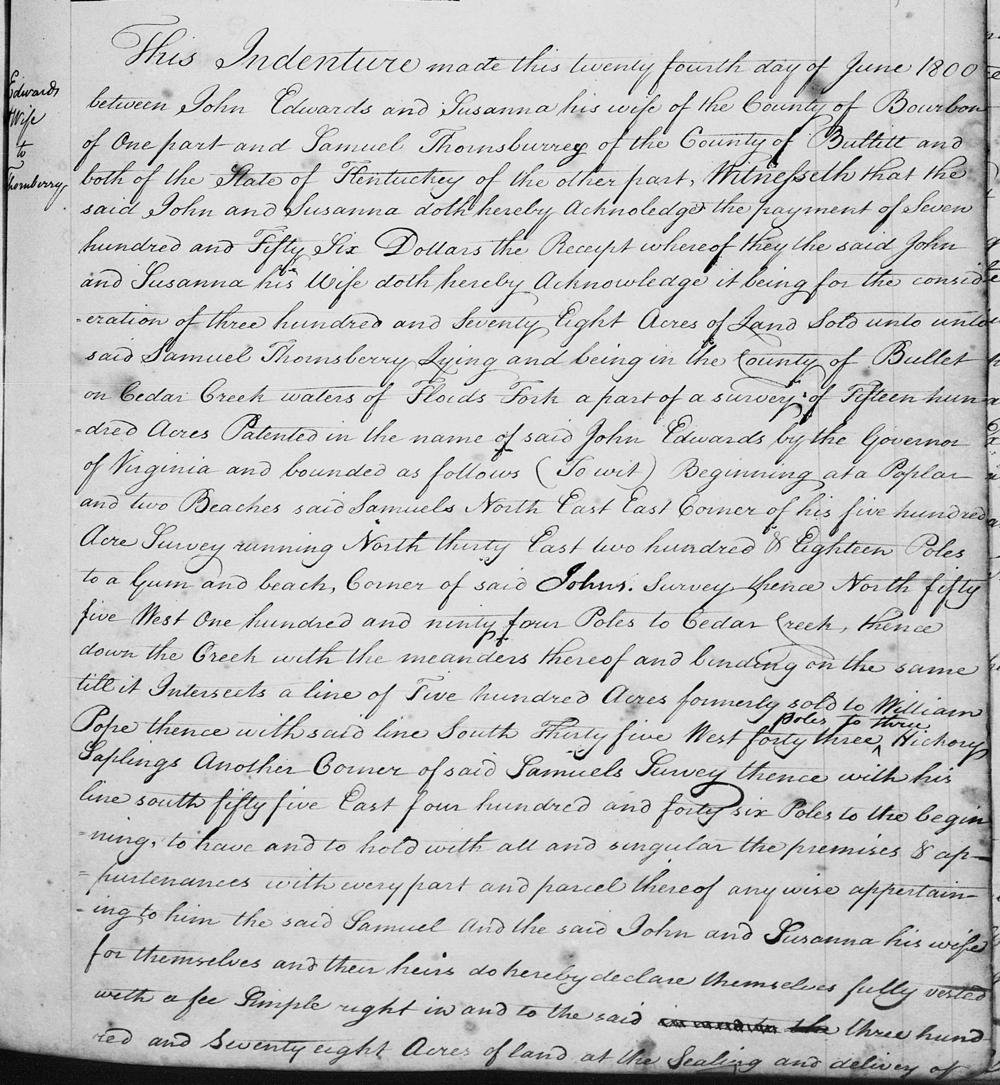 Edwards
& Wife
to
Thornberry
This Indenture made this twenty fourth day of June 1800
between John Edwards and Susanna his wife of the County of Bourbon
of One part and Samuel Thornsburrey of the County of Bullitt and
both of the State of Kentuckey of the other part, Witnesseth that the
said John and Susanna doth hereby Acknoledge the payment of Seven
hundred and Fifty Six Dollars the Receipt whereof they the said John
and Susanna his Wife doth hereby Acknowledge it being for the consid
-eration of three hundred and Seventy Eight Acres of Land Sold unto unto
said Samuel Thornsberry Lying and being in the County of Bullet
on Cedar Creek waters of Floids Fork a part of a survey of Fifteen hun
-dred Acres Patented in the name of said John Edwards by the Governor
of Virginia and bounded as follows (To wit) Beginning at a Poplar
and two Beaches said Samuels North East East Corner of his five hundred
Acre Survey running North thirty East two hundred & Eighteen Poles
to a Gum and beach, Corner of said Johns. Survey thence North fifty
five West One hundred and ninty four Poles to Cedar Creek, thence
down the Creek with the meanders thereof and binding on the same
till it Intersects a line of Five hundred Acres formerly sold to William
Pope thence with said line South Thirty five West forty three poles to three Hickory
Saplings Another Corner of said Samuels Survey thence with his
line south fifty five East four hundred and forty six Poles to the begin
-ning, to have and to hold with all and singular the premises & ap-
=purtenances with every part and parcel thereof any wise appertain-
-ing to him the said Samuel And the said John and Susanna his wife
for themselves and their heirs do hereby declare themselves fully vested
with a fee Simple right in and to the said the three hund
red and Seventy eight Acres of land at the Sealing and delivey of